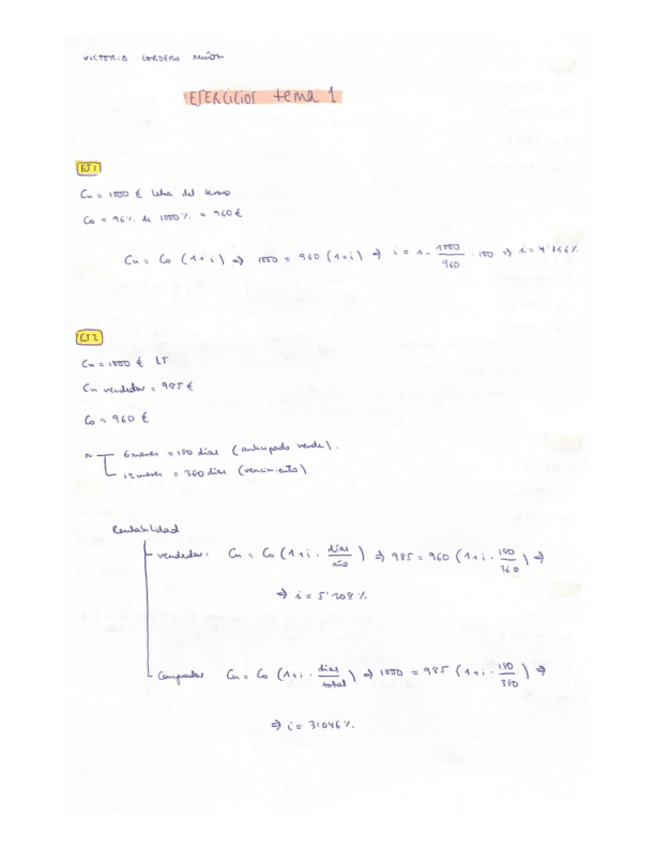 VICTORIA CORDERO MUÑOZ
EJERCICIOS tema 1
EJ 1
Cn = 1000 € letra del tesoro
C0 = 96% de 1000% = 960 €
Cn = C0 (1+i) ⇒ 1000 = 960 (1+i) ⇒ i = 1 - 1000/960 · 100 ⇒ i = 4'166%
EJ 2
Cn = 1000 € LT
Cn vendedor = 985 €
C0 = 960 €
n 6 meses = 180 días (anticipado vende).
12 meses = 360 días (vencimiento)
Rentabilidad
vendedor: Cn = C0 (1+i · días/año) ⇒ 985 = 960 (1+i · 180/360) ⇒
⇒ i = 5'208%
Comprador Cn = C0 (1+i · días/total) ⇒ 1000 = 985 (1+i · 180/360) ⇒
⇒ i = 3,046%.